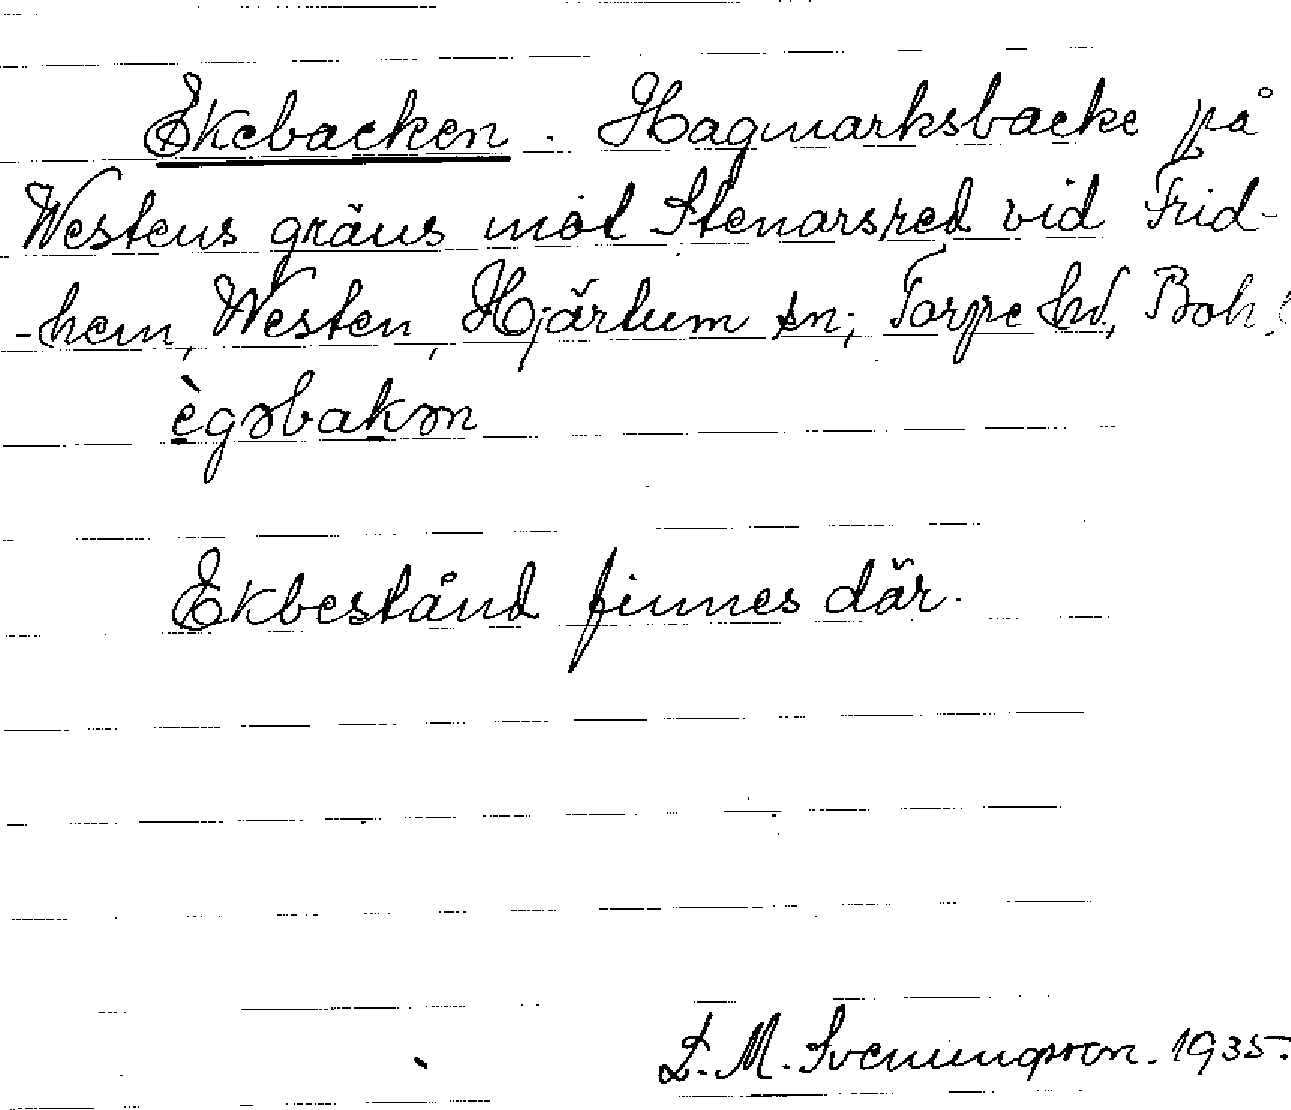 Ekebacken. Hagmarksbacke på
Westens gräns mot Stenarsred vid Frid-
-hem, Westen, Hjärtum sn; Torpe hd, Boh.
ègəbakən
Ekbestånd finnes där.
L. M. Svenungsson. 1935.